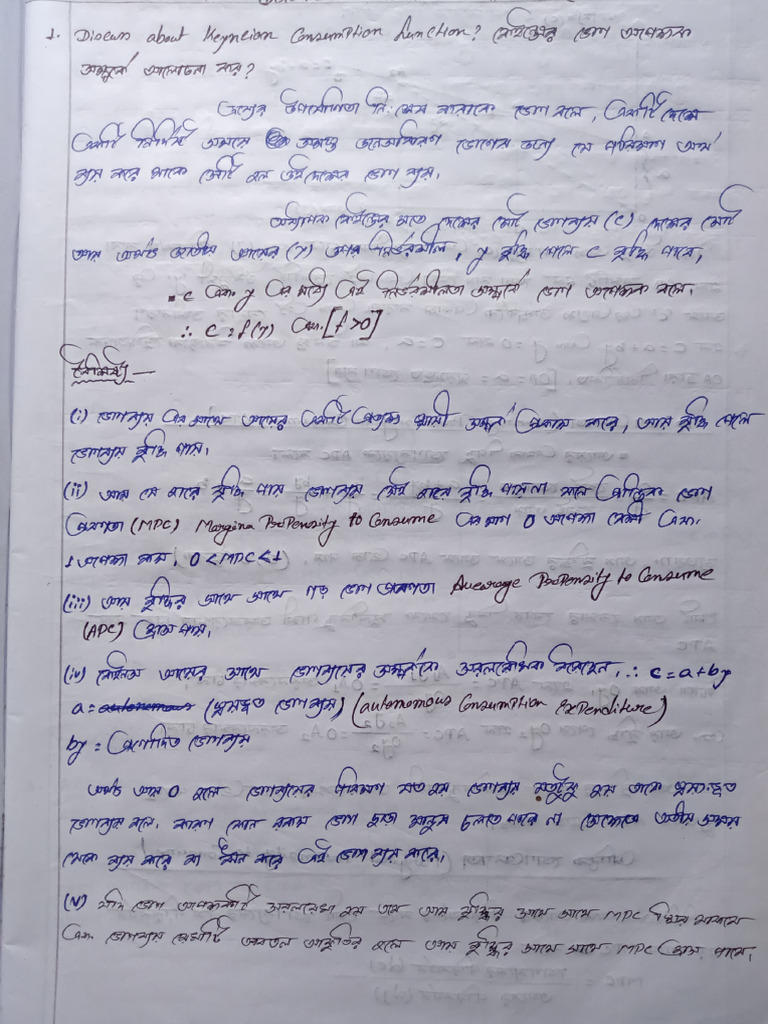 1. Discuss about Keyneian Consumption function? কেইন্সের ভোগ অপেক্ষক
সম্পর্কে আলোচনা কর?
দ্রব্যের উপযোগিতা নিঃশেষ করাকে ভোগ বলে, একটি দেশে
একটি নির্দিষ্ট সময়ে সমস্ত জনসাধারণ ভোগের জন্য যে পরিমাণ অর্থ
ব্যয় করে থাকে সেটি হল ঐ দেশের ভোগ ব্যয়।
অধ্যাপক কেইন্সের মতে দেশের মোট ভোগব্যয় (c) দেশের মোট
আয় অর্থাৎ জাতীয় আয়ের (y) উপর নির্ভরশীল, y বৃদ্ধি পেলে c বৃদ্ধি পাবে,
c এবং y এর মধ্যে এই নির্ভরশীলতা সম্পর্কে ভোগ অপেক্ষক বলে।
∴ c = f(y) এবং [f' > 0]
বৈশিষ্ট্য —
(i) ভোগব্যয় এর সাথে আয়ের একটি প্রত্যক্ষ স্থায়ী সম্পর্ক প্রকাশ করে, আয় বৃদ্ধি পেলে
ভোগব্যয় বৃদ্ধি পায়।
(ii) আয় যে হারে বৃদ্ধি পায় ভোগব্যয় সেই হারে বৃদ্ধি পায়না ফলে প্রান্তিক ভোগ
প্রবণতা (MPC) Margina Propensity to Consume এর মান 0 অপেক্ষা বেশী এবং
1 অপেক্ষা কম, 0 < MPC < 1
(iii) আয় বৃদ্ধির সাথে সাথে গড় ভোগ প্রবণতা Average Propensity to Consume
(APC) হ্রাস পায়।
(iv) কেইন্স আয়ের সাথে ভোগব্যয়ের সম্পর্ককে সরলরৈখিক বলেছেন, ∴ c = a + by
a = (স্বয়ম্ভূত ভোগব্যয়) (autonomous Consumption Expenditure)
by = প্রণোদিত ভোগব্যয়
অর্থাৎ আয় 0 হলে ভোগব্যয়ের পরিমাণ যত হয় ভোগব্যয় যতটুকু হয় তাকে স্বয়ম্ভূত
ভোগব্যয় বলে, কারণ কোন রকম ভোগ ছাড়া মানুষ চলতে পারে না সেক্ষেত্রে অতীত সঞ্চয়
থেকে ব্যয় করে বা ঋণ করে এই ভোগ ব্যয় করে।
(v) যদি ভোগ অপেক্ষকটি সরলরেখা হয় তবে আয় বৃদ্ধির সাথে সাথে MPC স্থির থাকবে
এবং ভোগব্যয় রেখাটি অবতল আকৃতির হলে আয় বৃদ্ধির সাথে সাথে MPC হ্রাস পাবে।